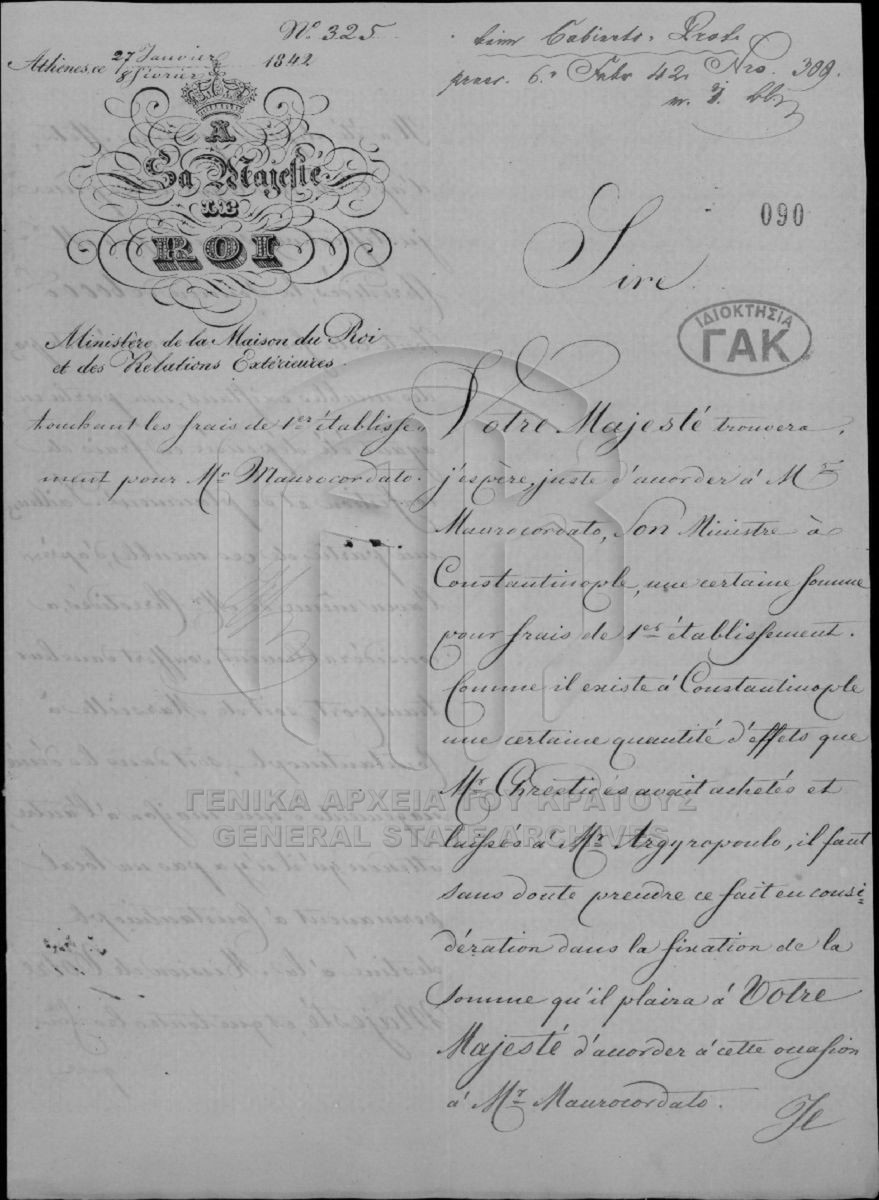 Nº 325
Athènes, ce 27 Janvier / 8 février 1842
Cabinets-Prot.
6. Febr 42 Nro. 389.
A
Sa Majesté
LE
ROI
090
Sire
ΙΔΙΟΚΤΗΣΙΑ
ΓΑΚ
Ministère de la Maison du Roi
et des Relations Extérieures.
touchant les frais de 1er établisse-
ment pour Mr Maurocordato.
Votre Majesté trouvera,
j'espère, juste d'accorder à Mr
Maurocordato, Son Ministre à
Constantinople, une certaine somme
pour frais de 1er établissement.
Comme il existe à Constantinople
une certaine quantité d'effets que
Mr Chrestidès avait achetés et
laissés à Mr Argyropoulo, il faut
sans doute prendre ce fait en consi-
dération dans la fixation de la
somme qu'il plaira à Votre
Majesté d'accorder à cette occasion
à Mr Maurocordato.
Je
ΓΕΝΙΚΑ ΑΡΧΕΙΑ ΤΟΥ ΚΡΑΤΟΥΣ
GENERAL STATE ARCHIVES